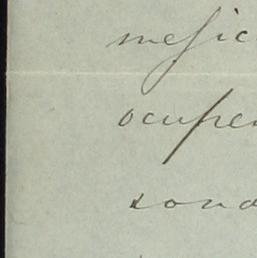 mejic
ocupen
sona